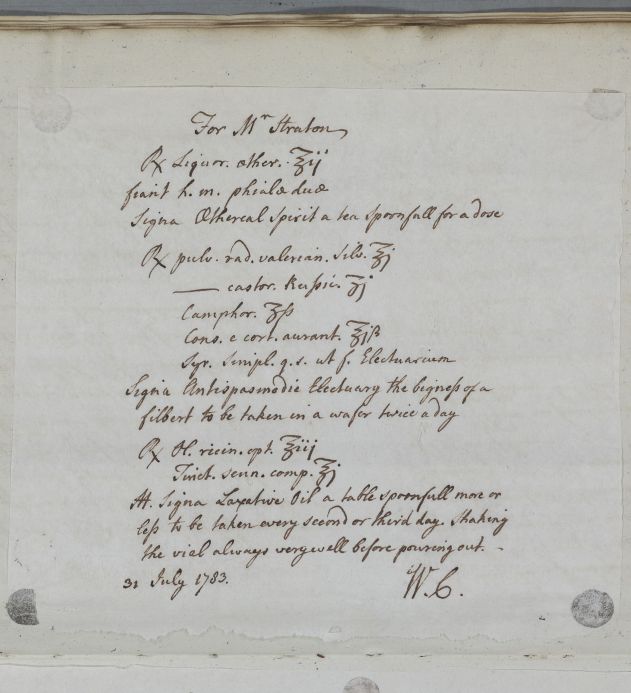 For Mr Straton
℞ Liquor. æther. ℥ij
fiant h. m. phialæ duæ
Signa Æthereal Spirit a tea spoonfull for a dose
℞ pulv. rad. valerian. silv. ℥j
—— castor. Russic. ʒj
Camphor. ʒß
Cons. e cort. aurant. ℥jß
Syr. simpl. q.s. ut f. Electuarium
Signa Antispasmodic Electuary the bigness of a
filbert to be taken in a wafer twice a day
℞ Ol. ricin. opt. ℥iij
Tinct. senn. comp. ℥j
M. Signa Laxative Oil a table spoonfull more or
less to be taken every second or third day. Shaking
the vial always very well before pouring out. -
31 July 1783.
W. C.